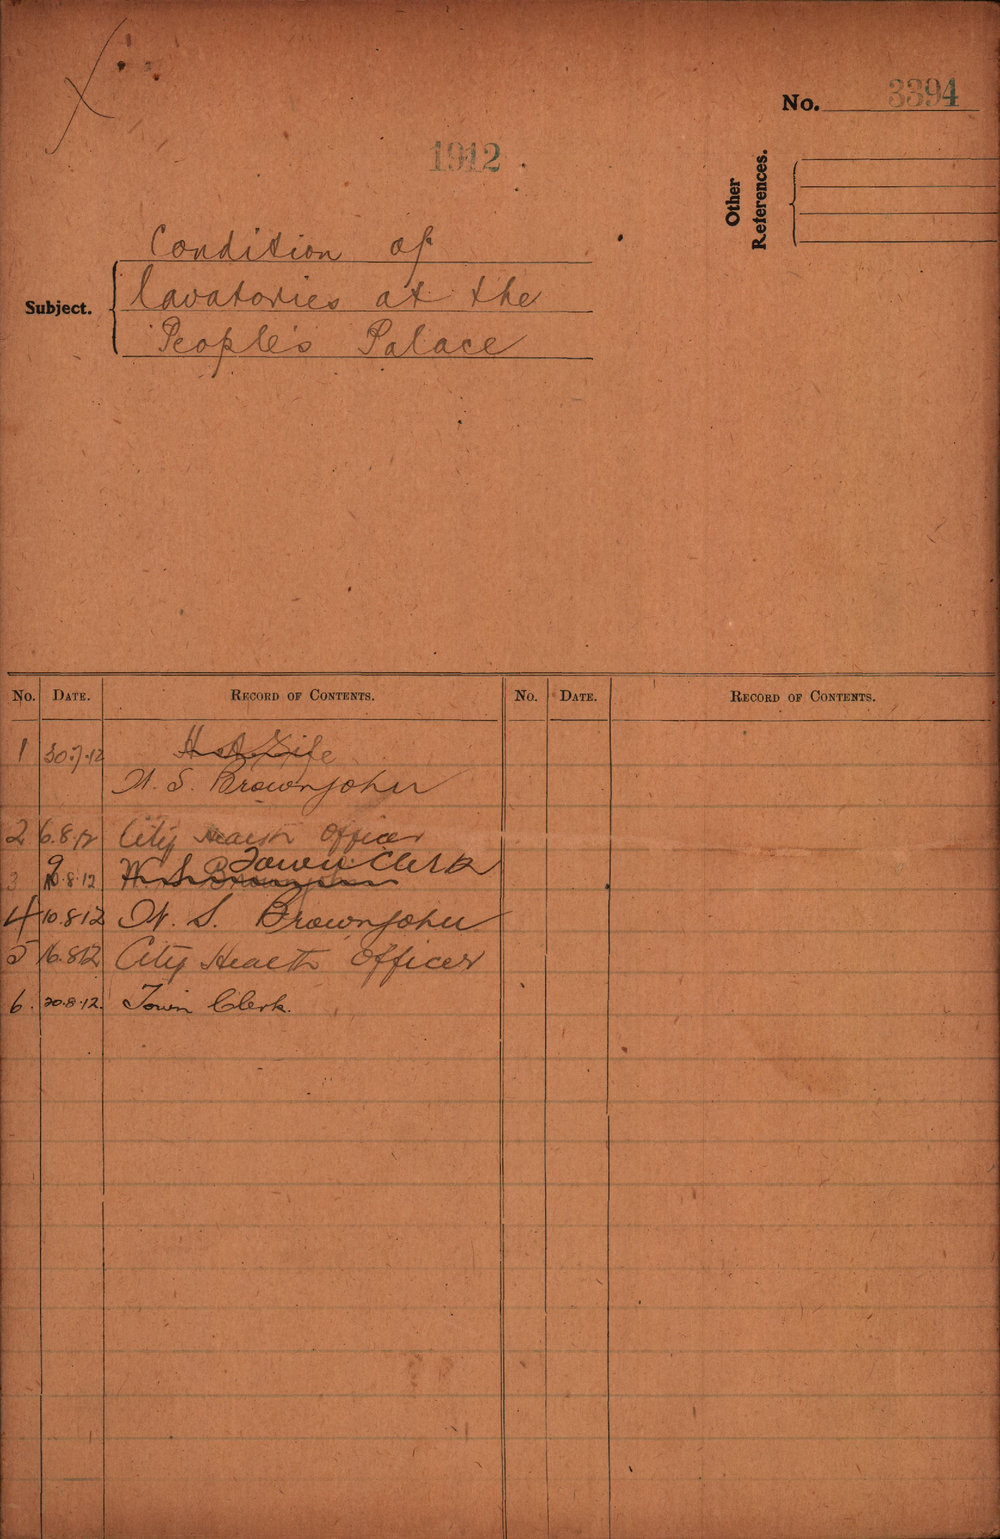 No. 3394
1912
Other
References.
Condition of
Subject. lavatories at the
People's Palace
No. DATE. RECORD OF CONTENTS. No. DATE. RECORD OF CONTENTS.
1 30.7.12 H. A. Fife
W. S. Brownjohn
2 6.8.12 City Health Officer
Town Clerk
3 9.8.12 W. S. Brownjohn
4 10.8.12 W. S. Brownjohn
5 16.8.12 City Health Officer
6. 20.8.12. Town Clerk.